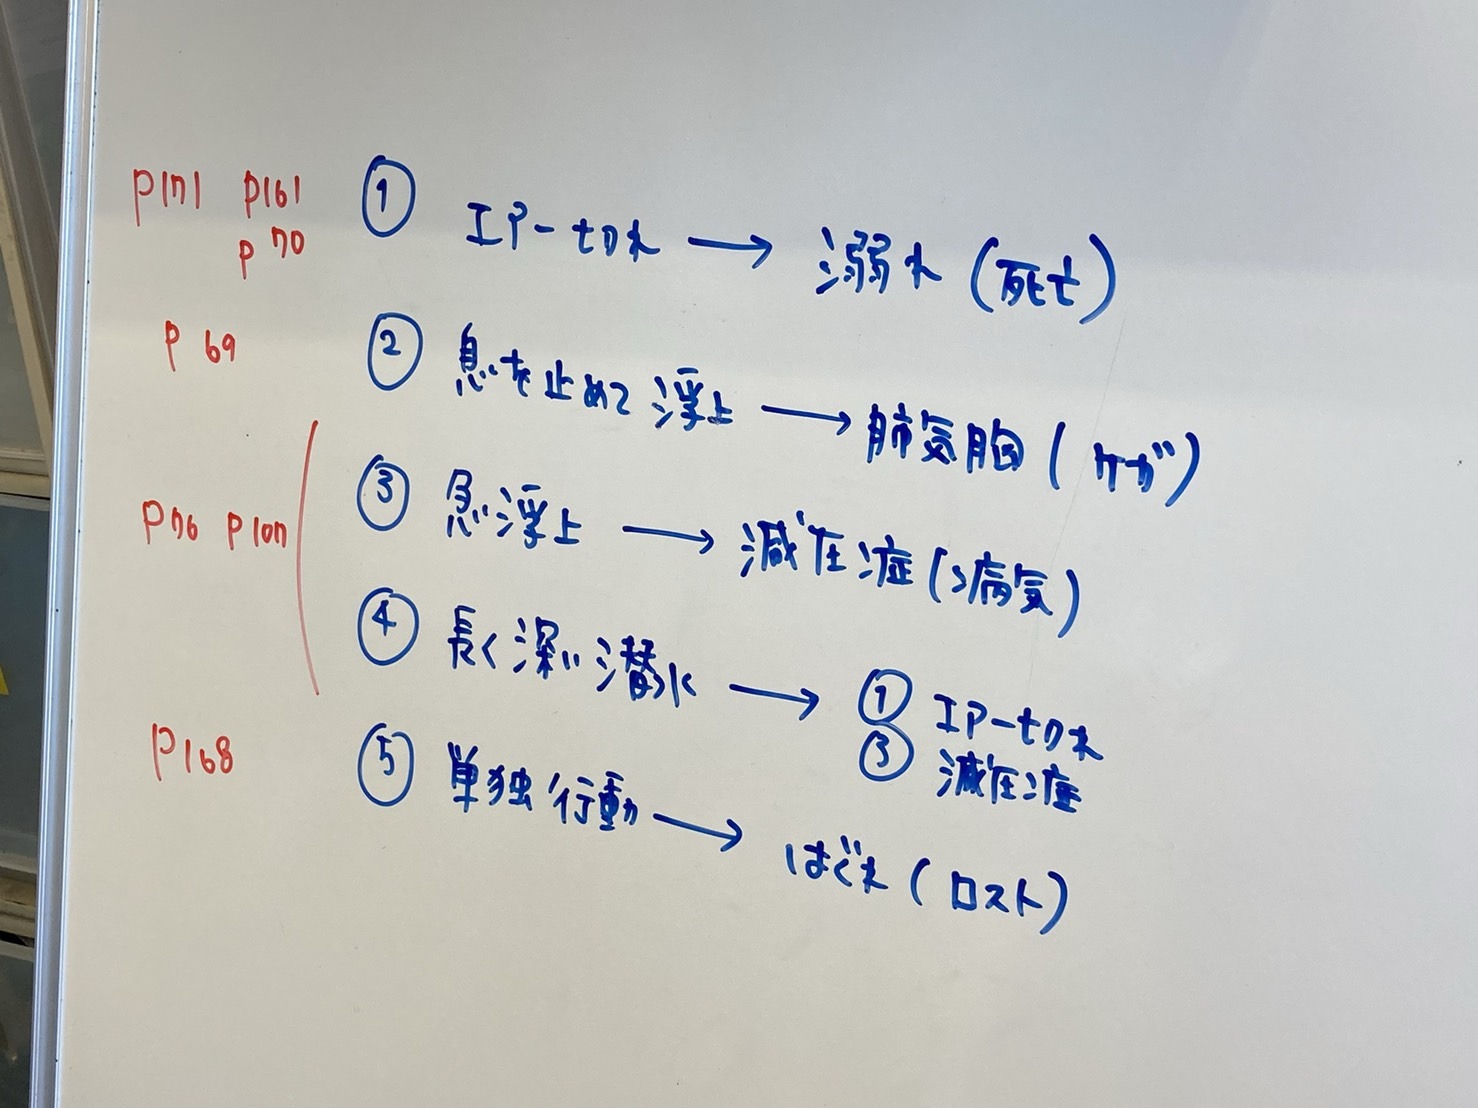 P171 P161 ① エアー切れ → 溺れ (死亡)
P70
P69 ② 息を止めて浮上 → 肺気胸 (ケガ)
③ 急浮上 → 減圧症 (病気)
P76 P107
④ 長く深い潜水 → ① エアー切れ
③ 減圧症
P168 ⑤ 単独行動 → はぐれ (ロスト)